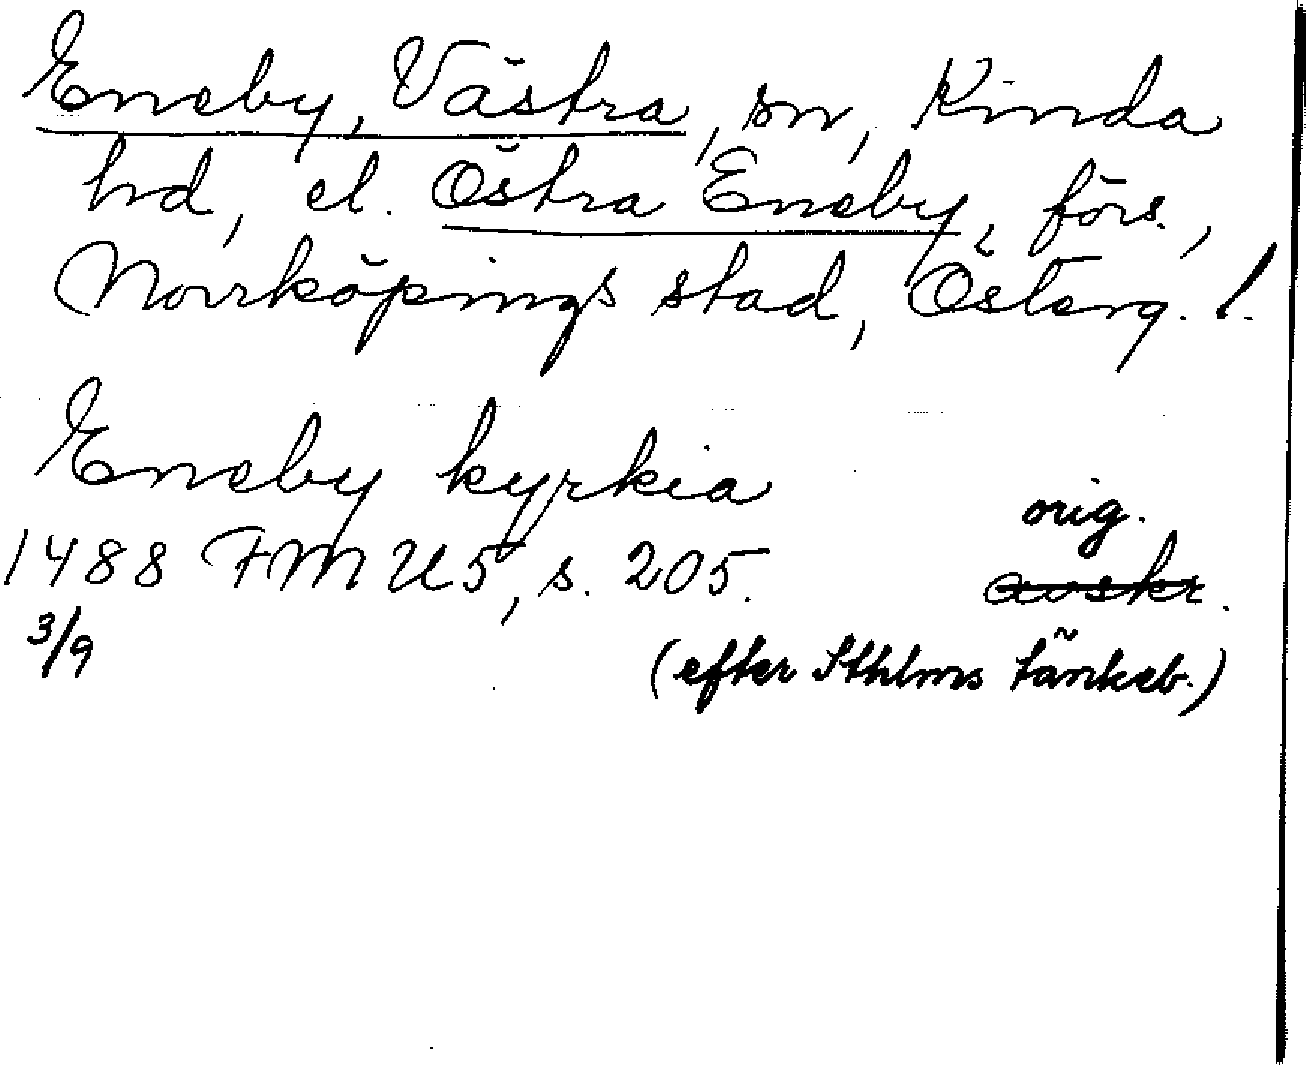 Eneby, Västra, sn, Kinda
hd, el. Östra Eneby, förs.,
Norrköpings stad, Österg. l.
Eneby kyrkia
orig.
1488 FMU 5, s. 205. avskr.
3/9 (efter Sthlms tänkeb.)